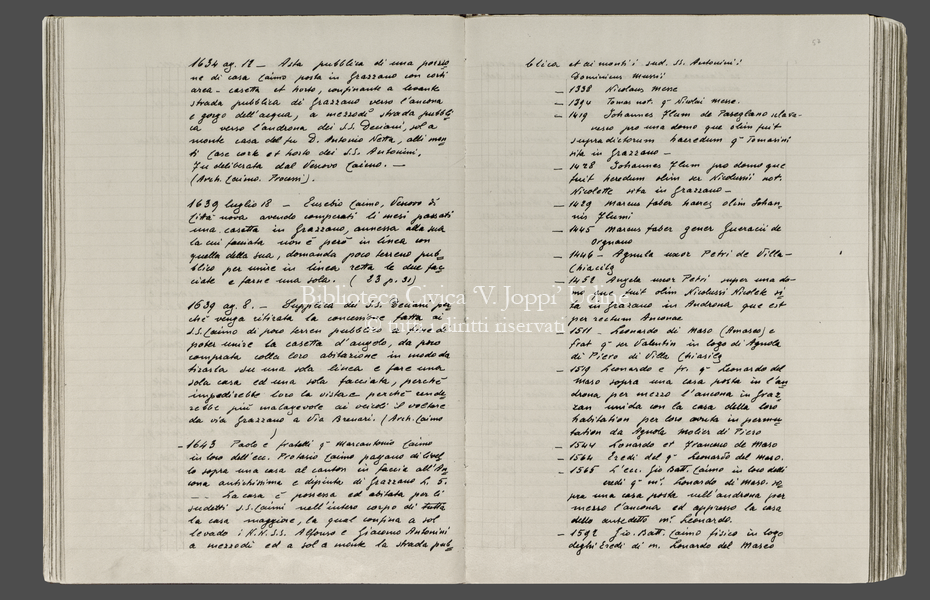 1634 ag. 12 _ Asta pubblica di una porzio
ne di casa Caimo posta in Grazzano con corti
area - casetta et horto, confinante a levante
strada pubblica di Grazzano verso l'ancona
e gorgo dell'acqua, a mezzodì strada pubbli
ca verso l'androna dei S.S. Deciani, sol a
monte casa del fu D. Antonio Netta, alli mon
ti Case corte et horto dei S.S. Antonini,
Fu deliberata dal Vescovo Caimo. —
(Arch. Caimo. Processi).
1639 luglio 18 — Eusebio Caimo, Vescovo di
Città nova avendo comperati li mesi passati
una casetta in Grazzano, annessa alla sua
la cui facciata non è però in linea con
quella della sua, domanda poco terreno pub
blico per unire in linea retta le due fac
ciate e farne una sola. ( 23 p. 31)
1639 ag. 8. — Supplica dei S.S. Deciani per
chè venga ritirata la concessione fatta ai
S.S. Caimo di poco terren pubblico
poter unire la casetta d'angolo, da poco
comprata colla loro abitazione in modo da
tirarla su una sola linea e fare una
sola casa ed una sola facciata, perchè
impedirebbe loro la vista e perchè rende
rebbe più malagevole ai veicoli il voltare
da via Grazzano a Via Brenari. (Arch. Caimo
)
_ 1643 Paolo e fratelli q™ Marcantonio Caimo
in loco dell'ecc. Protasio Caimo pagano di livel
lo sopra una casa al canton in faccia all'An
cona antichissima e dipinta di Grazzano L. 5.
_ _ La casa è possessa ed abitata per li
sudetti S.S. Caimi nell'intero corpo di tutta
la casa maggiore, la qual confina a sol
levado i N.N. S.S. Alfonso e Giacomo Antonini
a mezzodì ed a sol a monte la strada pub
blica et ai monti i sud. SS. Antonini:
Dominicus
_ 1338 Nicolaus
_ 1394 Tomas not. q™ Nicolai
_ 1419 Johannes Flum de Paseglano
verso pro una domo que olim fuit
supradictorum haeredum q™ Tomasini
sita in Grazzano —
_ 1428 Johannes Flum pro domo que
fuit heredum olim ser Nicolussii not.
Nicolette sita in Grazzano —
_ 1429 Marcus faber haeres olim Johan
nis Flumi
_ 1445 Marcus faber gener
Orgnano
_ 1446 — Agnula uxor Petri de Villa-
Chiacilg
_ 1452 Angela uxor Petri super una do
mo que fuit olim Nicolussi Nicolete si
ta in Grazano in Androna que est
per rectum Anconae
_ 1511 — Leonardo di Maso (Amareo) e
frat q™ ser Valentin in logo di Agnola
di Piero di Villa Chiacilg
_ 1519 Leonardo e fr. q™ Leonardo del
Maso sopra una casa posta in l'an
drona per mezzo l'ancona in Graz
zan unida con la casa della loro
habitation per loro avuta in permu
tation da Agnola molier di Piero
_ 1544 Lonardo et Francesco de Maso
_ 1564 Eredi del q™ Leonardo del Maso.
_ 1565 L'ecc. Gio Batt. Caimo in loco delli
eredi q™ m.r Leonardo di Maso. so
pra una casa posta nell'androna per
mezzo l'ancona ed appresso la casa
dello antedetto m.r Leonardo.
_ 1592 Gio. Batt. Caimo fisico in logo
degli Eredi di m. Leonardo del Maseo
Biblioteca Civica 'V. Joppi' Udine
© tutti i diritti riservati